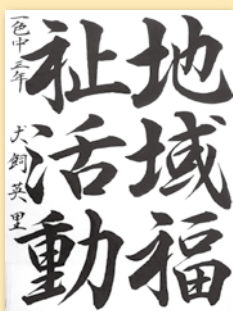 地域福
祉活動
一色中三年
犬飼英里